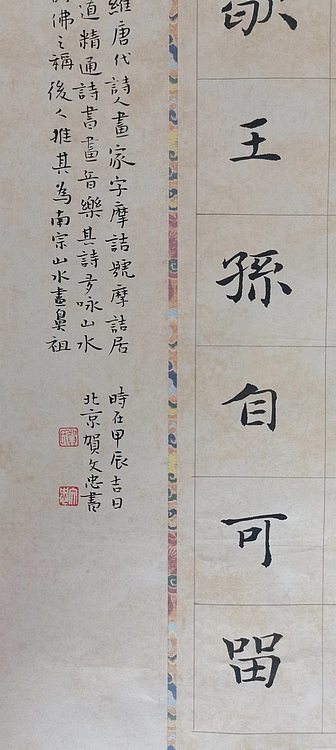 歇王孫自可留
維唐代詩人畫家字摩詰號摩詰居
道精通詩書畫音樂其詩多咏山水
佛之稱後人推其為南宗山水畫鼻祖
時在甲辰吉日
北京賀文忠書